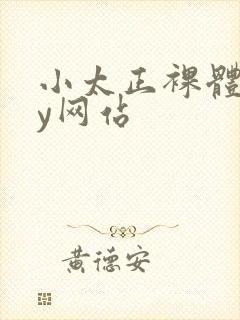 小太正裸體
y网佔
黄德安